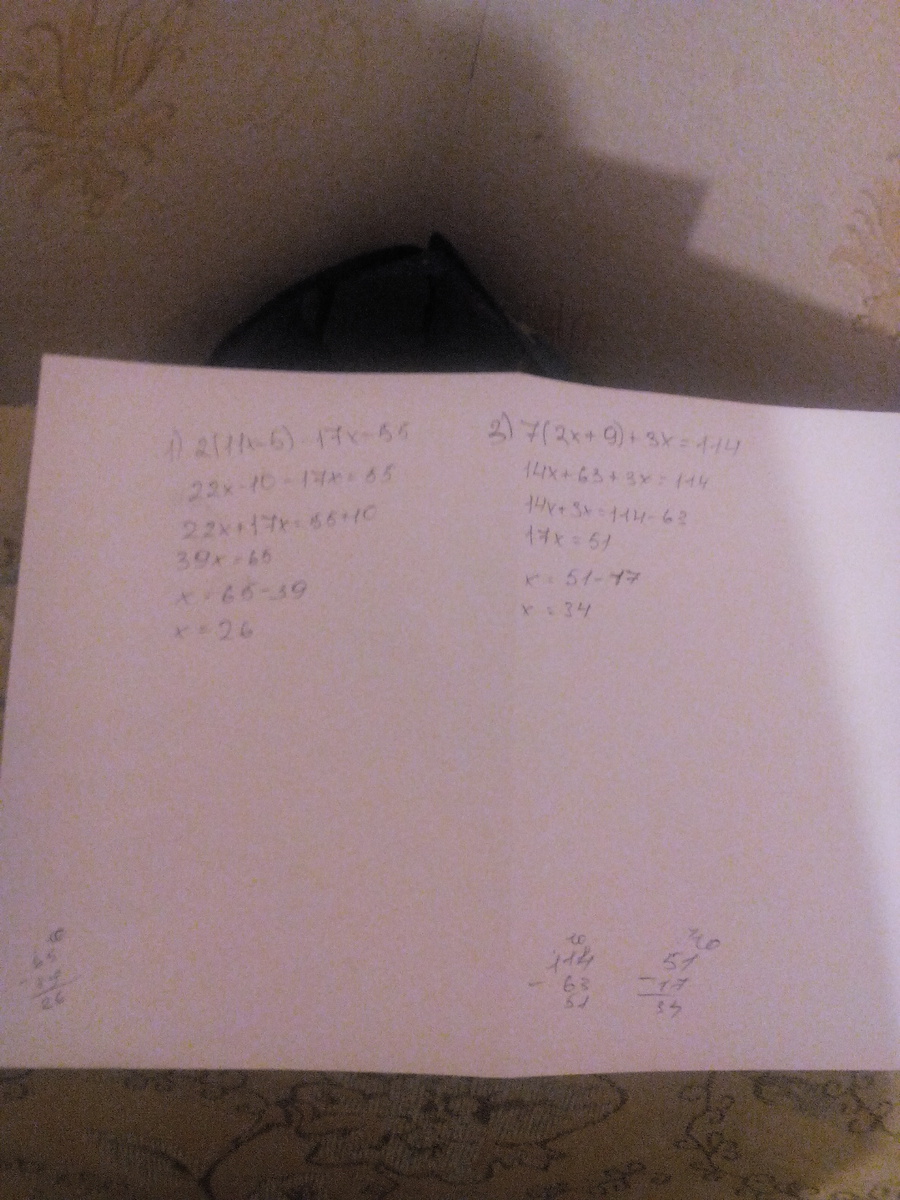 1) 2(11x-5)-17x=55
22x-10-17x=55
22x+17x=55+10
39x=65
x=65-39
x=26
2) 7(2x+9)+3x=114
14x+63+3x=114
14x+3x=114-63
17x=51
x=51-17
x=34
26
10
114
- 63
51
10
51
-17
34